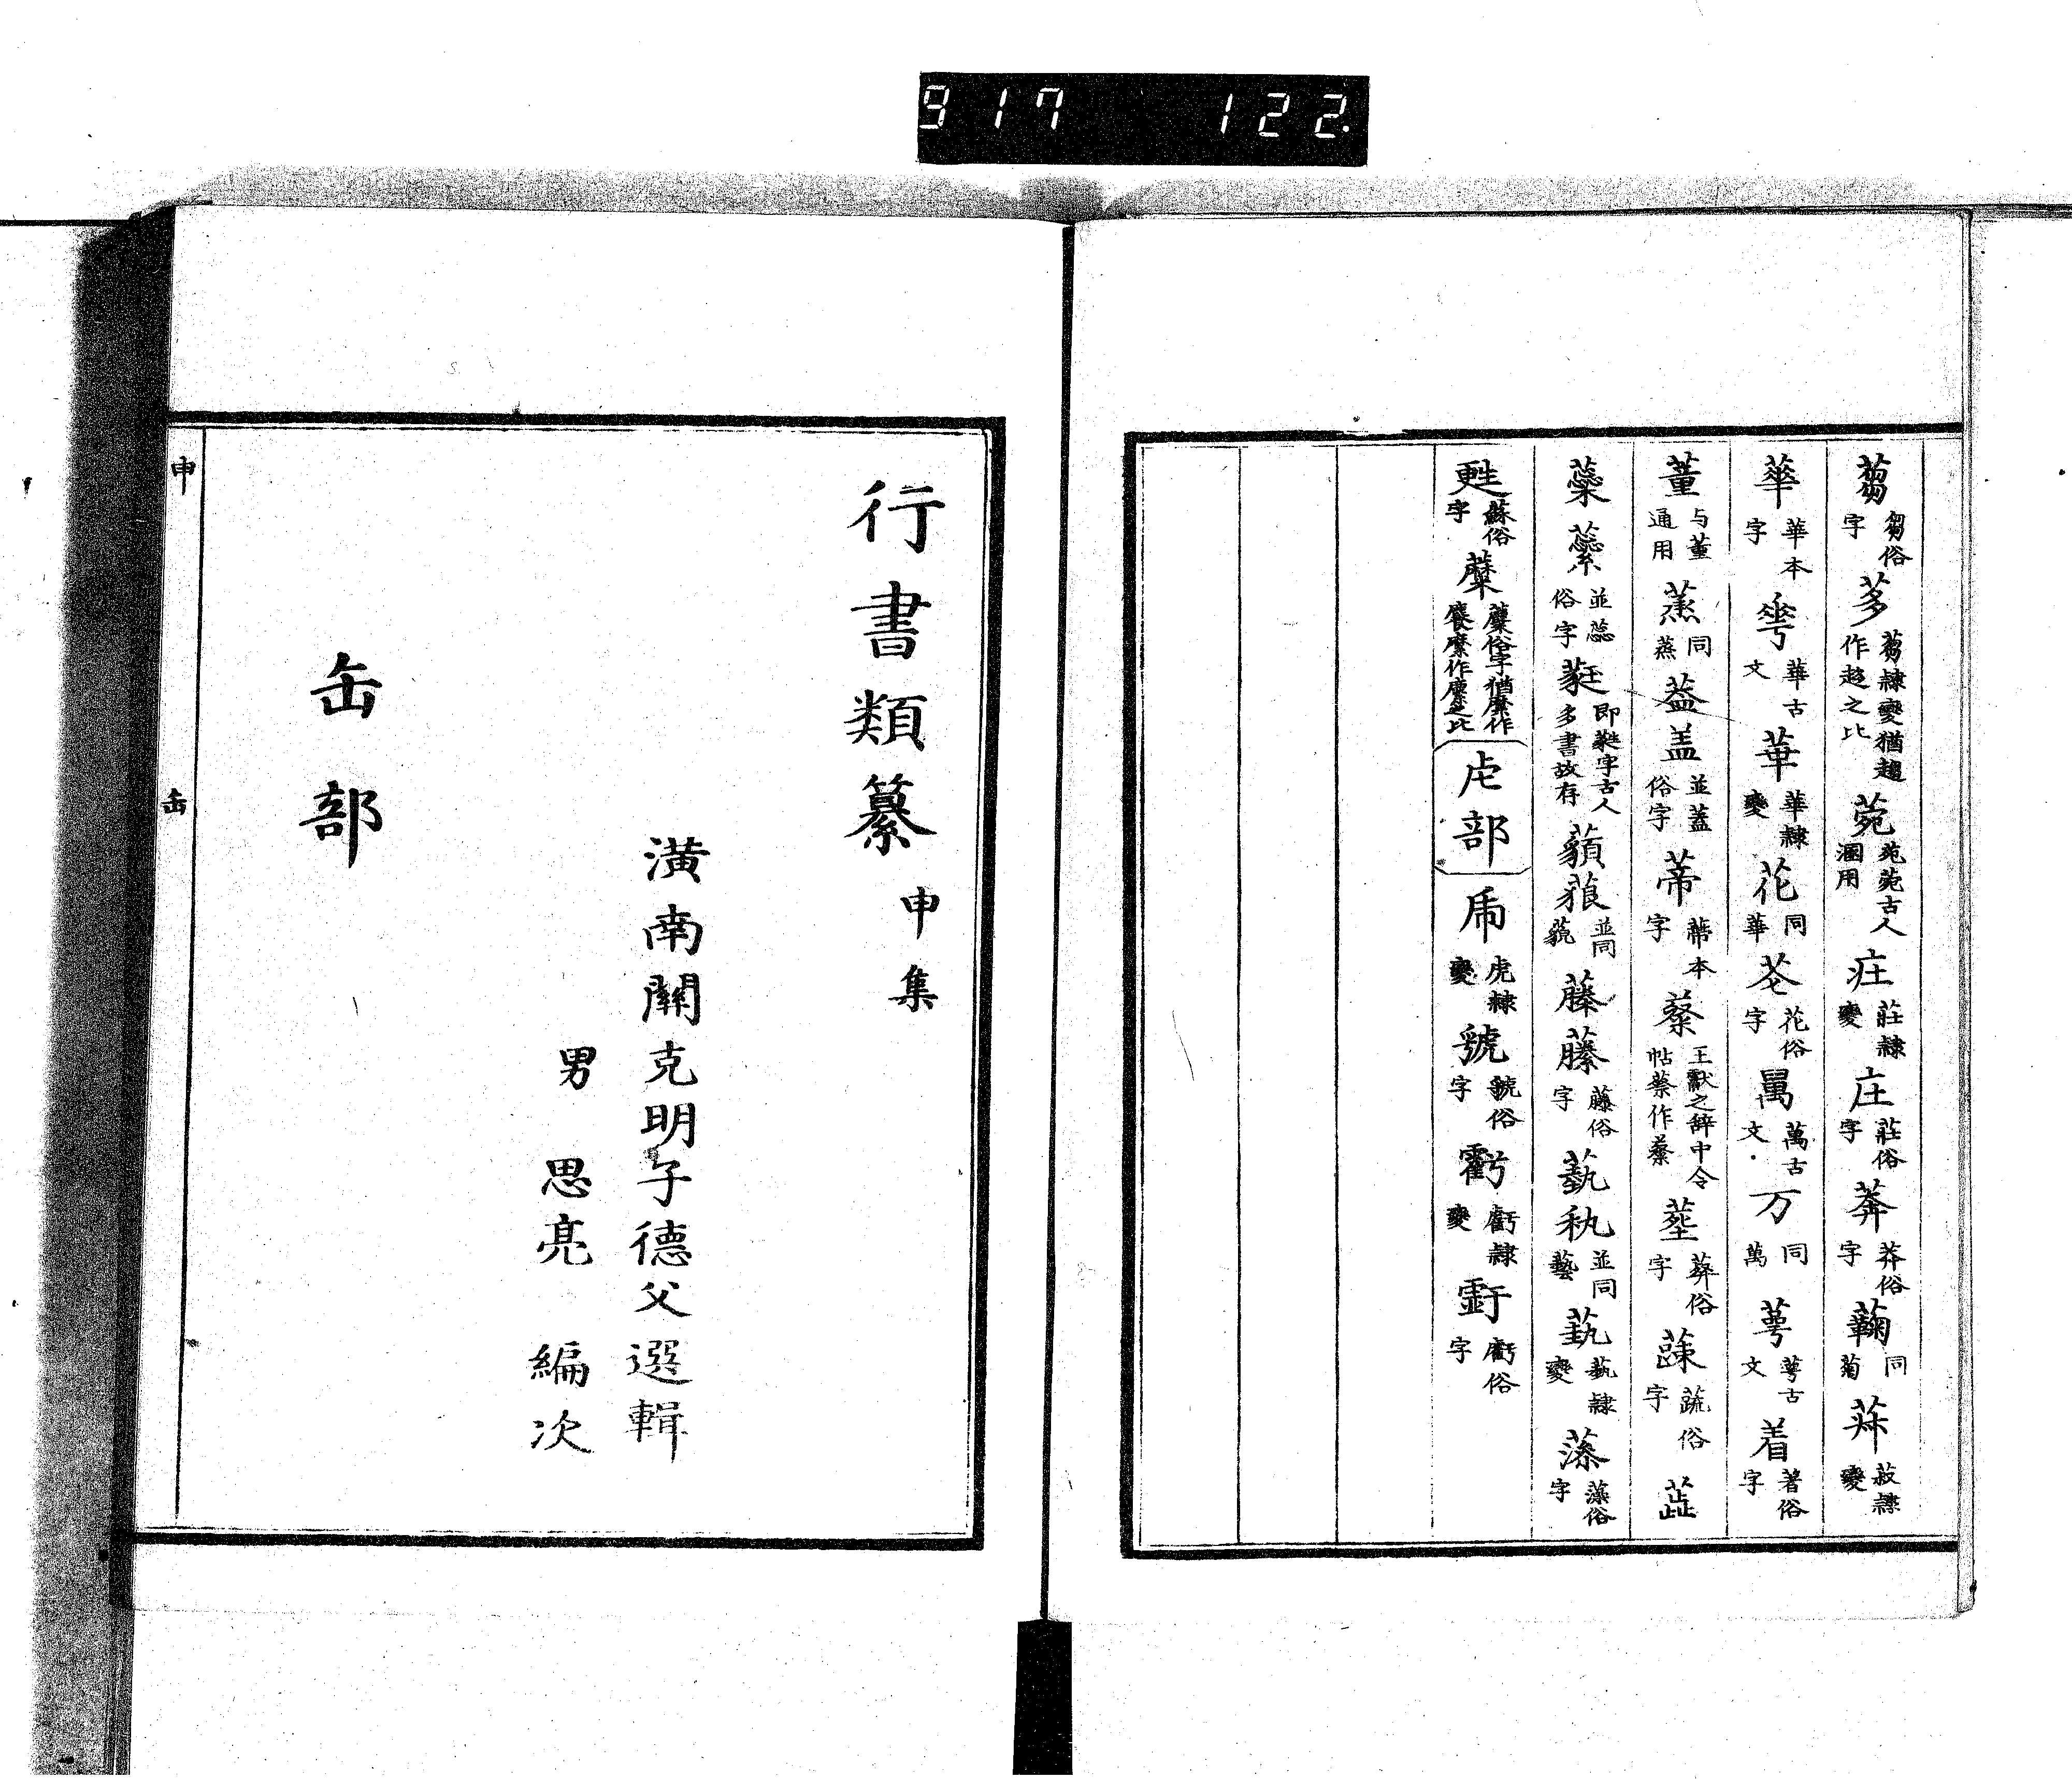 917 122
蒭 芻俗字 茤 蒭隸變猶趨作趍之比 菀 苑菀古人溷用 㽵 莊隸變 庄 莊俗字 莾 莽俗字 蘜 同菊 菽隸變
華本字 華古文 華 華隸變 花 同華 花俗字 萬古文 万 同萬 萼古文 着 著俗字
董 与董通用 𬞞 同蒸 葢 盖 並蓋俗字 蒂 蔕本字 蔡 王獻之辭中令帖蔡作蔡 塟 葬俗字 蔬俗字
並蕊俗字 即蕤字古人多書故存 並同藐 藤 藤俗字 蓺 秇 並同藝 藝隸變 藻俗字
甦 蘇俗字 蘪俗字猶麋作 虍部 乕 虎隸變 號 號俗字 虧隸變 虧俗字
行書類纂 申集
潢南關克明子德父選輯
男 思亮 編次
缶部
申 缶